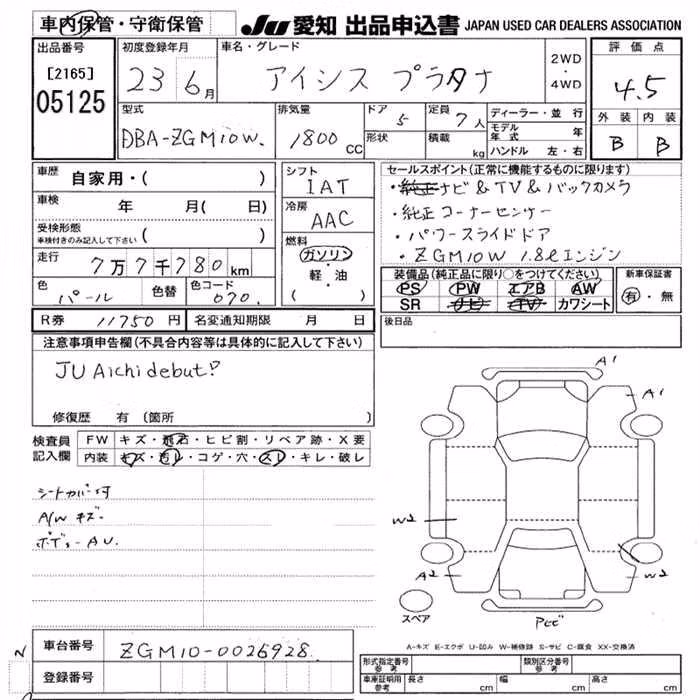 車内保管・守衛保管 JU 愛知 出品申込書 JAPAN USED CAR DEALERS ASSOCIATION
出品番号 初度登録年月 車名・グレード 評価点
[2165] 23 6月 アイシス プラタナ 2WD・4WD 4.5
05125
型式 排気量 ドア 5 定員 7人 ディーラー・並行 外装 内装
DBA-ZGM10W. 1800cc 形状 積載 kg モデル年式 年 B B
ハンドル 左・右
車歴 自家用・( ) シフト セールスポイント(正常に機能するものに限ります)
IAT ・純正ナビ&TV&バックカメラ
車検 年 月( 日) 冷房 ・純正コーナーセンサー
AAC ・パワースライドドア
受検形態 ( )
車検付きのみ記入して下さい
燃料 ・ZGM10W 1.8ℓエンジン
走行 7万7千780km ガソリン 装備品(純正品に限り○をつけてください) 新車保証書
軽・油 PS PW エアB AW 有・無
色 パール 色替 色コード 070. ( ) SR ナビ TV カワシート
R券 11750円 名変通知期限 月 日 後日品
注意事項申告欄(不具合内容等は具体的に記入して下さい)
JU Aichi debut?
A1
A1
修復歴 有 (箇所 )
検査員記入欄 FW キズ・飛石・ヒビ割・リペア跡・X要
内装 キズ・汚レ・コゲ・穴・スレ・キレ・破レ
シートカバー付
A/W キズ
W2
ボディーAU.
A2 W2
スペア Pビビ
A-キズ E-エクボ U-凹み W-補修跡 S-サビ C-腐食 XX-交換済
N 車台番号 ZGM10-0026928.
形式指定番号 類別区分番号
登録番号 車庫証明参考 長さ cm 幅 cm 高さ cm